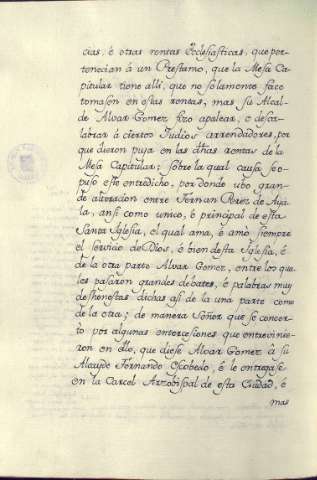 cias, é otras rentas Ecclesiasticas, que per-
tenecian á un Prestamo, que la Mesa Ca-
pitular tiene allí, que no solamente face
tomason en estas rentas, mas su Alcal-
de Alvar Gomez fizo apalear, é descar-
labrar á ciertos Judios arrendadores, por
que dieron puja en las dhas rentas de la
Mesa Capitular; sobre la qual causa se o-
puso este entredicho, por donde ubo gran-
de altercacion entre Fernan Perez de Aya-
la, ansi como unico, é principal de esta
Santa Iglesia, el qual ama, é amó siempre
el servicio de Dios, é bien desta Iglesia, é
de la otra parte Alvar Gomez, entre los que-
les pasaron grandes debates, é palabras muy
deshonestas dichas asi de la una parte como
de la otra; de manera Señor que se concer-
tó por algunas entercesiones que entrevinie-
ron en ello, que diese Alvar Gomez á su
Alcayde Fernando Escobedo, é le entregase
en la Carcel Arzobispal de esta Ciudad, é
mas